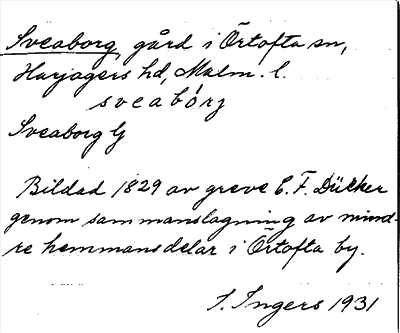 Sveaborg, gård i Örtofta sn,
Harjagers hd, Malm. l.
sveabórj
Sveaborg G
Bildad 1829 av greve C. F. Dücker
genom sammanslagning av mind-
re hemmansdelar i Örtofta by.
I. Ingers 1931